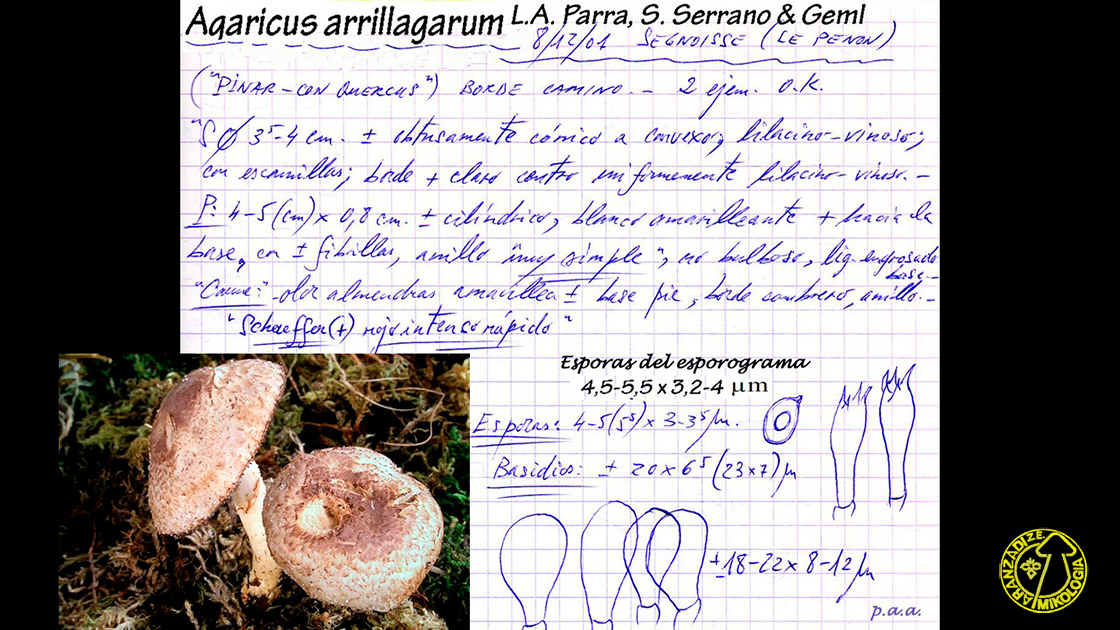 Agaricus arrillagarum L.A. Parra, S. Serrano & Geml
8/12/01 SEGNOISSE (LE PENON)
("PINAR-CON QUERCUS") BORDE CAMINO.- 2 ejem. O.K.
"S Ø 3⁵-4 cm. ± obtusamente cónico a convexo, lilacino-vinoso;
con escamillas; borde + claro centro uniformemente lilacino-vinoso.-
P: 4-5(cm) x 0,8 cm. ± cilíndrico, blanco amarilleante + hacia la
base, con ± fibrillas, anillo "muy simple", no bulboso, lig. engrosado
base.-
"Carne:" olor almendras amarillea ± base pie, borde sombrero, anillo.-
"Schaeffer(+) rojo intenso rápido"
Esporas del esporograma
4,5-5,5 x 3,2-4 µm
Esporas: 4-5(5⁵) x 3-3⁵ µm.
Basidios: ± 20 x 6⁵ (23x7) µ
±18-22 x 8-12 µ
p.a.a.
ARANZADIZE
MIKOLOGIA